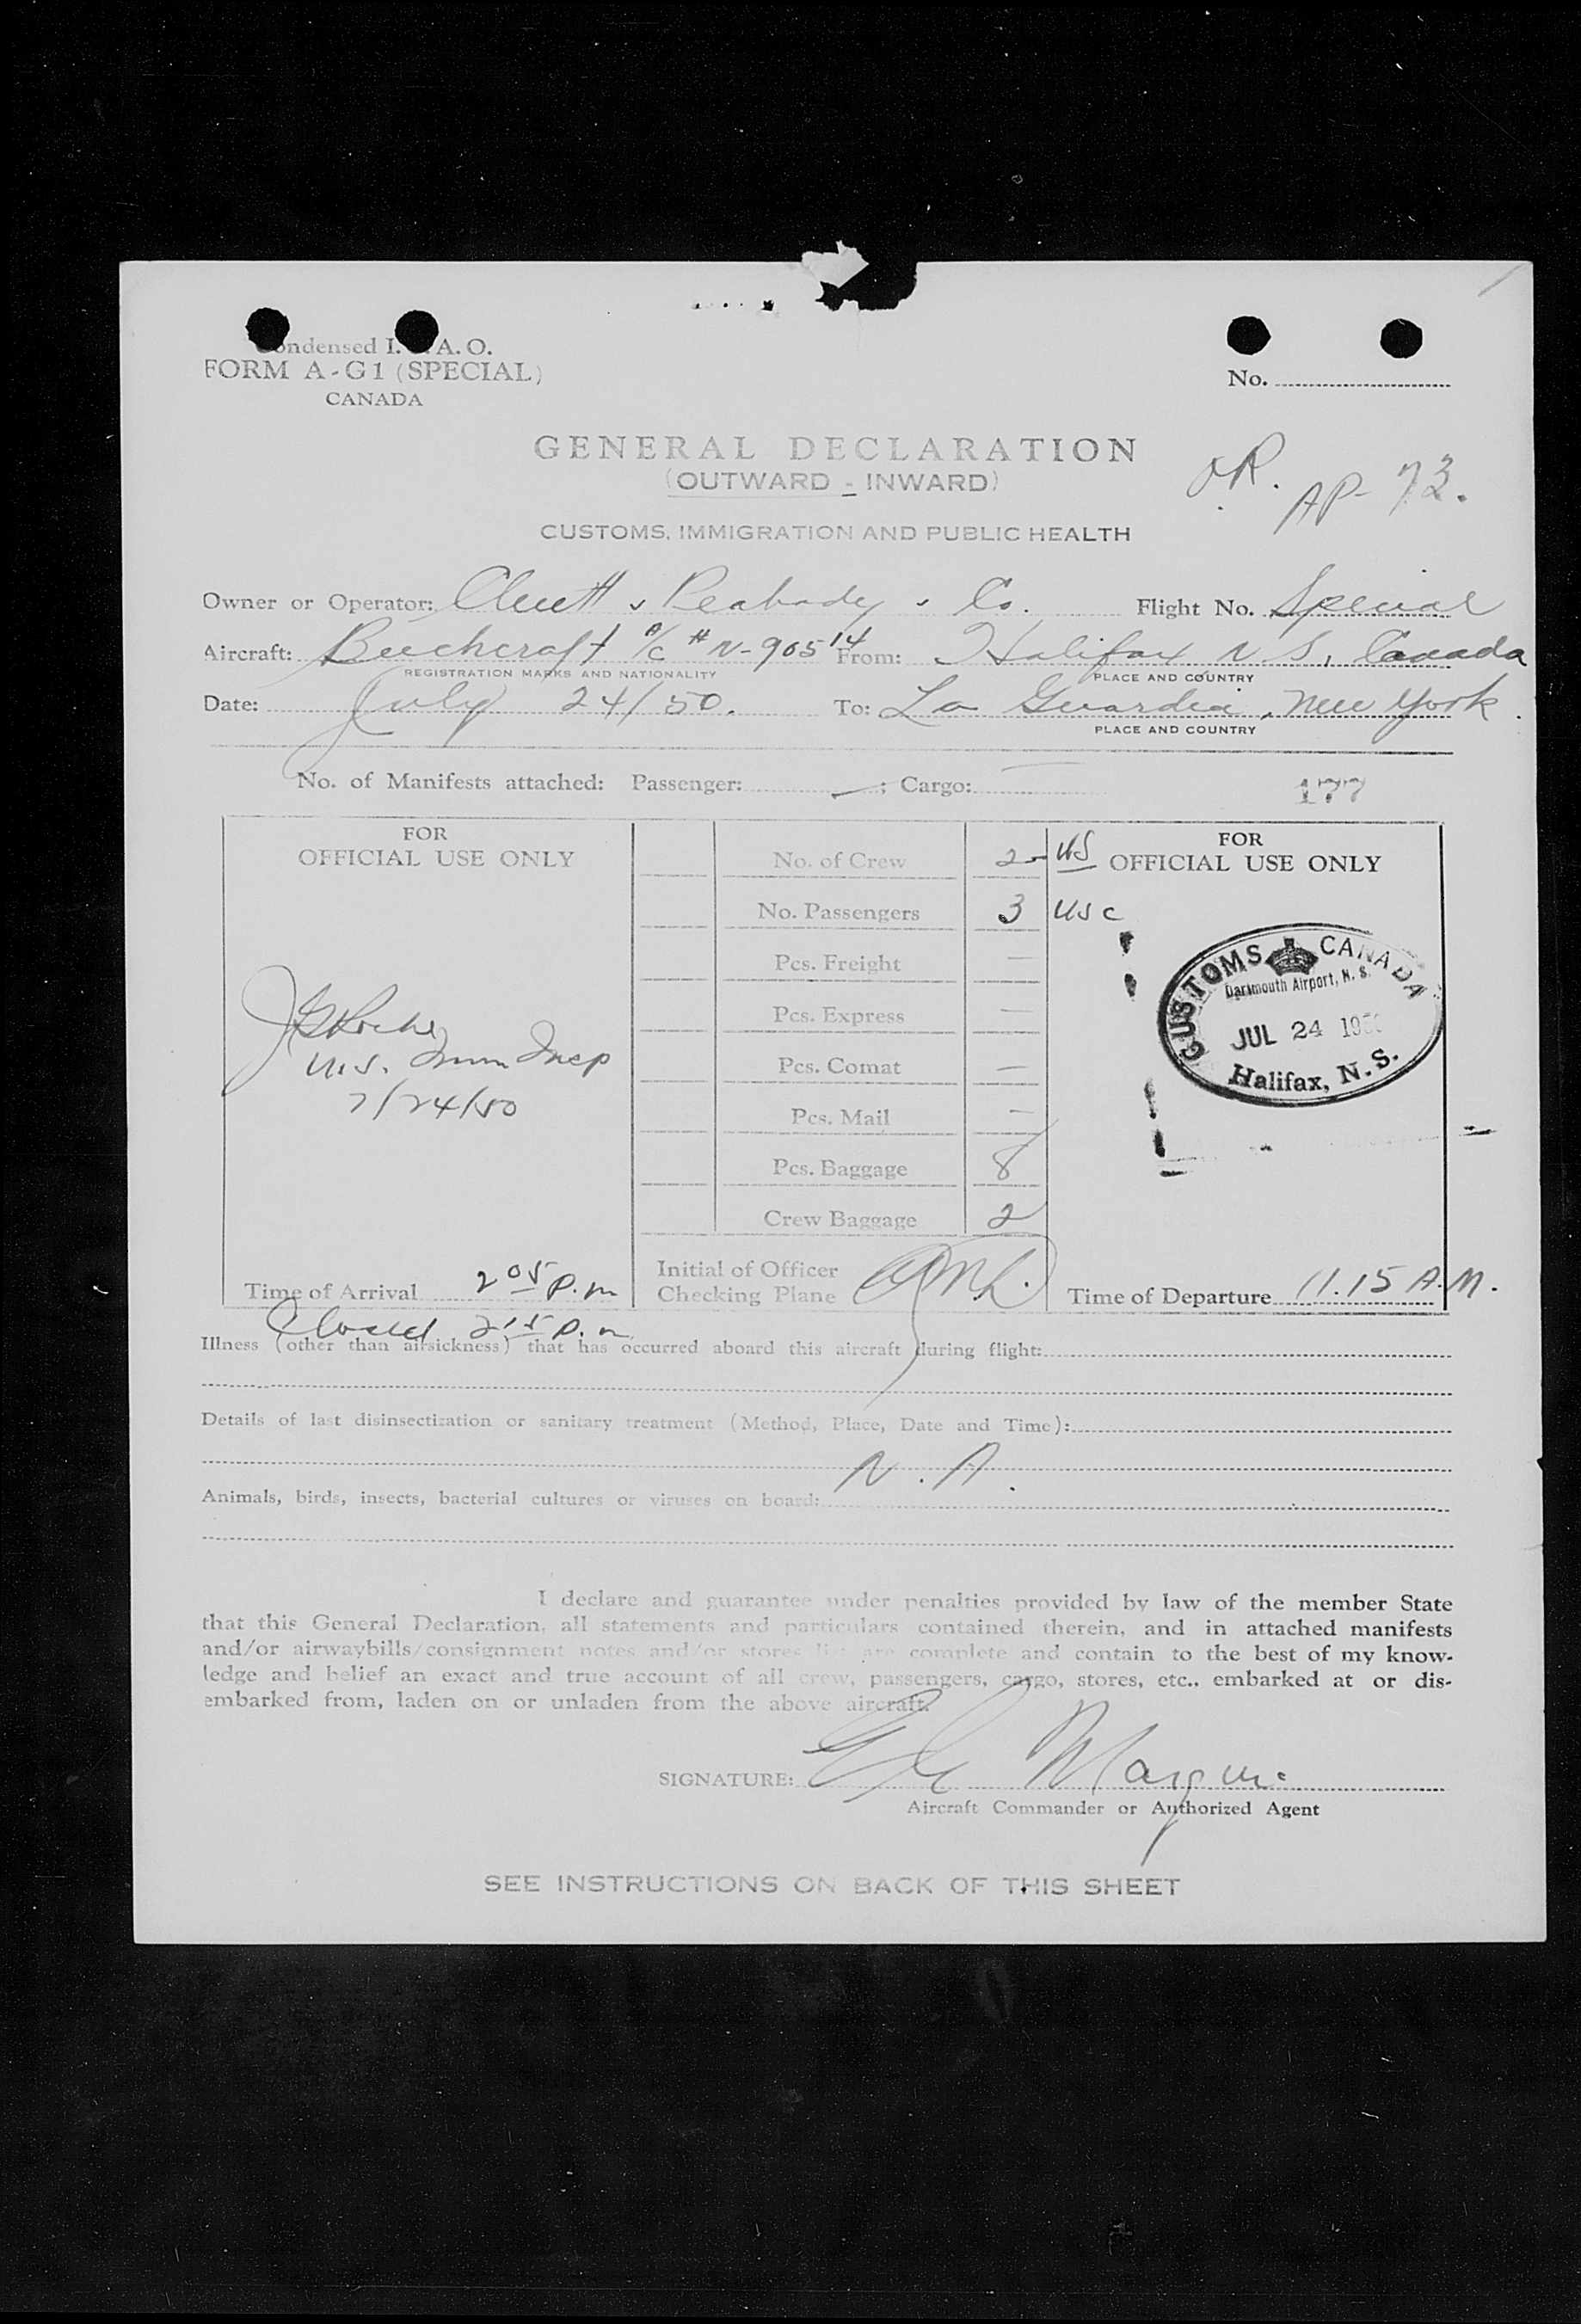 Condensed I. C. A. O.
FORM A-G1 (SPECIAL)
CANADA
No.
GENERAL DECLARATION
(OUTWARD - INWARD)
AP- 73.
CUSTOMS, IMMIGRATION AND PUBLIC HEALTH
Owner or Operator: Cluett, Peabody & Co. Flight No. Special
Aircraft: Beechcraft A/C # N-90514 From: Halifax N.S, Canada
REGISTRATION MARKS AND NATIONALITY PLACE AND COUNTRY
Date: July 24/50. To: La Guardia, New York.
PLACE AND COUNTRY
No. of Manifests attached: Passenger: —; Cargo: —
177
FOR
OFFICIAL USE ONLY
U.S. Imm Insp
7/24/50
Time of Arrival 2 05 P.m
Closed 2 15 P.m
No. of Crew 2 - US
No. Passengers 3 USC
Pcs. Freight —
Pcs. Express —
Pcs. Comat —
Pcs. Mail —
Pcs. Baggage 8
Crew Baggage 2
Initial of Officer
Checking Plane
FOR
OFFICIAL USE ONLY
CUSTOMS CANADA
Dartmouth Airport, N. S.
JUL 24 1950
Halifax, N. S.
Time of Departure 11.15 A.M.
Illness (other than airsickness) that has occurred aboard this aircraft during flight:
Details of last disinsectization or sanitary treatment (Method, Place, Date and Time):
N. A.
Animals, birds, insects, bacterial cultures or viruses on board:
I declare and guarantee under penalties provided by law of the member State
that this General Declaration, all statements and particulars contained therein, and in attached manifests
and/or airwaybills/consignment notes and/or stores list are complete and contain to the best of my know-
ledge and belief an exact and true account of all crew, passengers, cargo, stores, etc., embarked at or dis-
embarked from, laden on or unladen from the above aircraft.
SIGNATURE:
Aircraft Commander or Authorized Agent
SEE INSTRUCTIONS ON BACK OF THIS SHEET